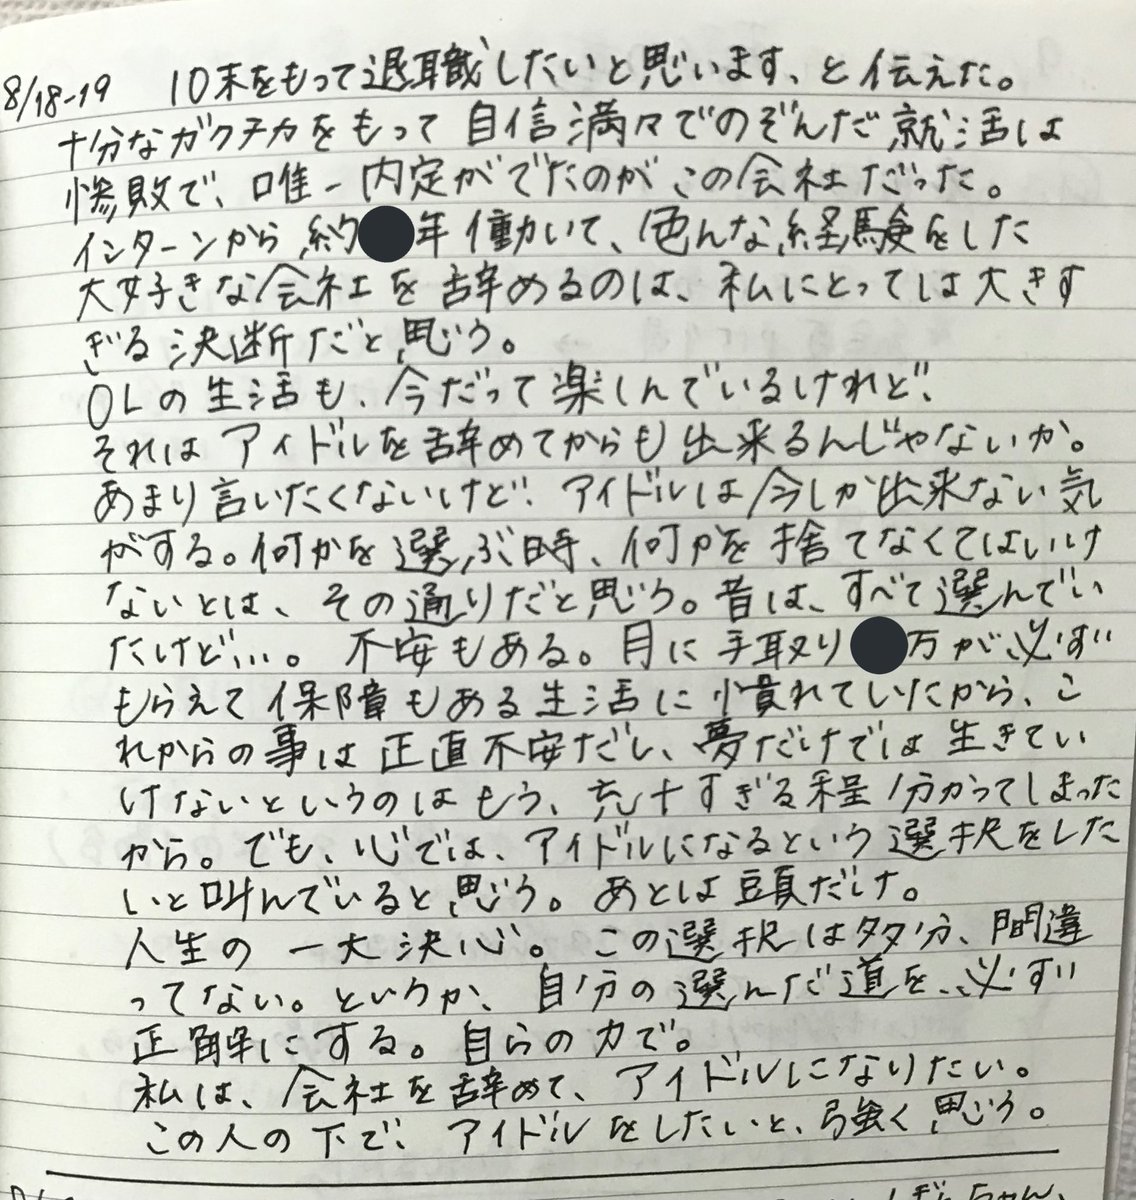 8/18-19 10末をもって退職したいと思います、と伝えた。
十分なガクチカをもって自信満々でのぞんだ就活は
惨敗で、唯一内定がでたのがこの会社だった。
インターンから約 年働いて、色んな経験をした
大好きな会社を辞めるのは、私にとっては大きす
ぎる決断だと思う。
OLの生活も、今だって楽しんでいるけれど、
それはアイドルを辞めてからも出来るんじゃないか。
あまり言いたくないけど、アイドルは今しか出来ない気
がする。何かを選ぶ時、何かを捨てなくてはいけ
ないとは、その通りだと思う。昔は、すべて選んでい
たけど…。不安もある。月に手取り 万が必ず
もらえて保障もある生活に慣れていたから、こ
れからの事は正直不安だし、夢だけでは生きてい
けないというのはもう、充十すぎる程分かってしまった
から。でも、心では、アイドルになるという選択をした
いと叫んでいると思う。あとは頭だけ。
人生の一大決心。この選択は多分、間違
ってない。というか、自分の選んだ道を、必ず
正解にする。自らの力で。
私は、会社を辞めて、アイドルになりたい。
この人の下で、アイドルをしたいと、強く思う。
ちゃん、